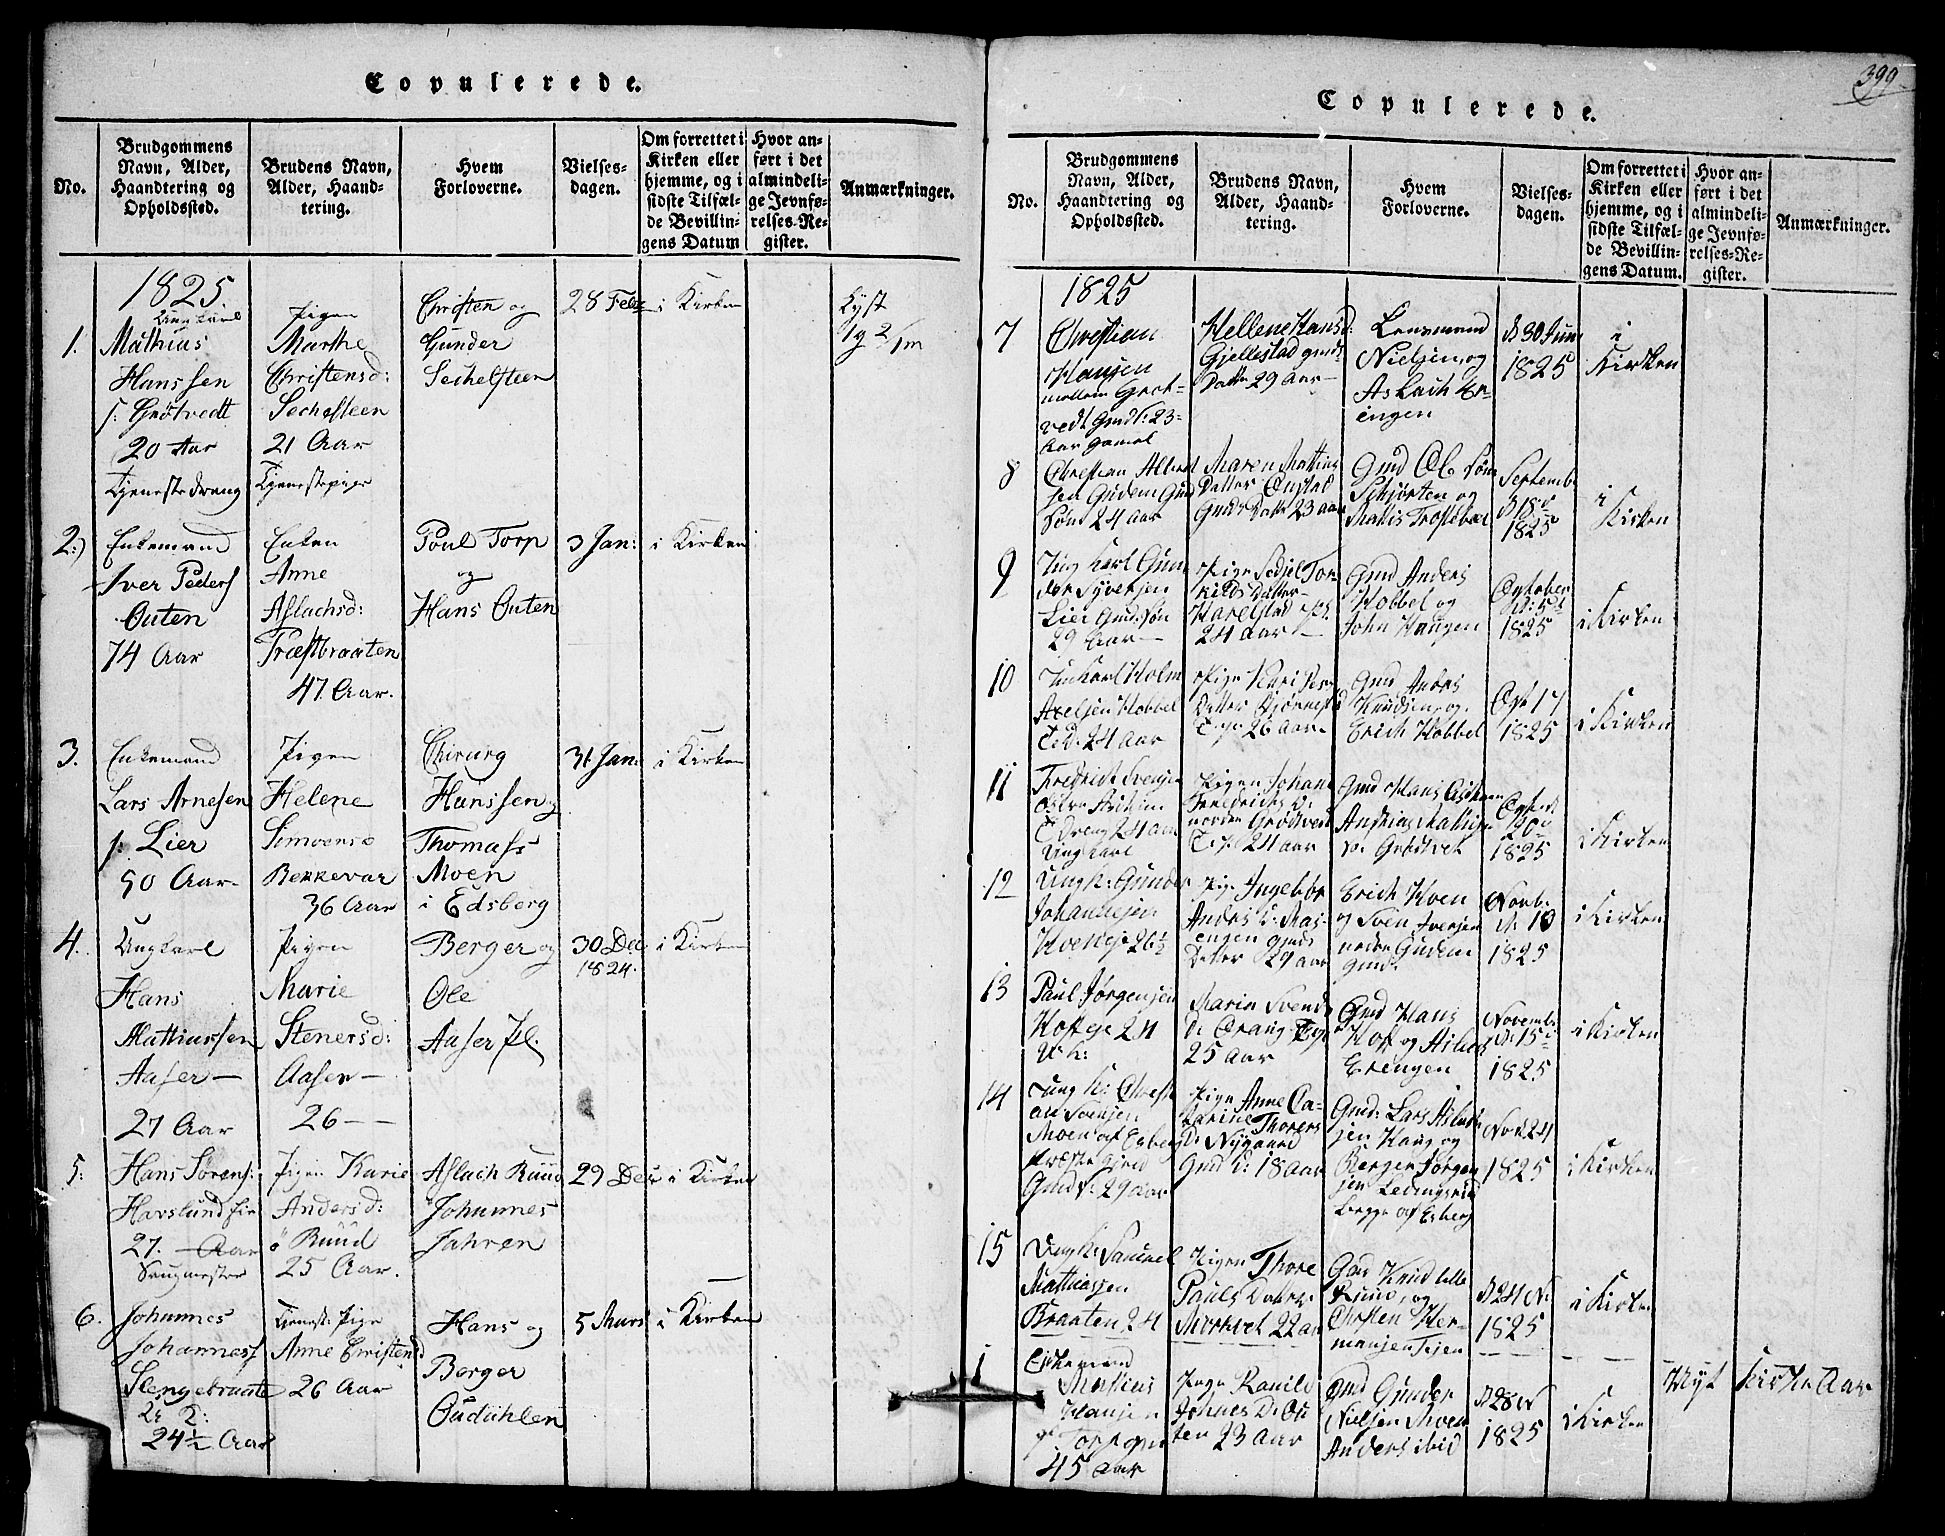 Copulerede.
No.
Brudgommens
Navn, Alder,
Haandtering og
Opholdssted.
Brudens Navn,
Alder, Haand-
tering.
Hvem
Forloverne.
Vielses-
dagen.
Om forrettet i
Kirken eller
hjemme, og i
sidste Tilfæl-
de Bevillin-
gens Datum
Hvor an-
ført i det
almindeli-
ge Jevnfø-
relses-Re-
gister.
Anmærkninger.
1825.
1.
Ungkarl
Mathias
Hanssen
Grötvedt
20 Aar
Tjenestedreng
Pigen
Marthe
Christensd:
Sechelsteen
21 Aar
Tjenestepige
Christen og
Gunder
Sechelsteen
28 Febr
i Kirken
Lyst
2:)
Enkemand
Iver Peders
Outen
74 Aar
Enken
Anne
Aslachsd:
Træstbraaten
47 Aar.
Poul Torp
og
Hans Outen
3 Jan:
i Kirken
3.
Enkemand
Lars Arnesen
Lier
50 Aar
Pigen
Helene
Simensd
Bekkevar
36 Aar
Chirurg
Hanssen og
Thomass
Moen
i Edsberg
31 Jan:
i Kirken
4.
Ungkarl
Hans
Mathiassen
Aaser —
27 Aar
Pigen
Marie
Stenersd:
Aaser —
26 — —
Berger og
Ole
Aaser Pl.
30 Dec
1824.
i Kirken
5:
Hans Sörens:
Havslund
27. Aar
Saugmester
Pigen Karie
Andersd:
Ruud
25 Aar.
Aslach Ruud
Johannes
Jahren
29 Dec
i Kirken
6.
Johannes
Johanness
Slengebraate
24½ Aar
Tjenest: Pige
Anne Christensd
26 Aar
Hans og
Berger
Oudahlen
5 Mars
i Kirken
399
Copulerede.
No.
Brudgommens
Navn, Alder,
Haandtering og
Opholdssted.
Brudens Navn,
Alder, Haand-
tering.
Hvem
Forloverne.
Vielses-
dagen.
Om forrettet i
Kirken eller
hjemme, og i
sidste Tilfæl-
de Bevillin-
gens Datum.
Hvor an-
ført i det
almindeli-
ge Jevnfø-
relses-Re-
gister.
Anmærkninger.
1825
7
Christian
Hansen
mellem Grøt-
vedt Gmd: 23
Aar gamel
Hellene Hansd:
Gjellestad gmds
Datter 29 Aar —
Lensmand
Nielsen og
Aslach Er-
ingen
D 30 Juni
1825
i
Kirken
8
Christian
Gudem Gmd
Søn 24 Aar
Maren Mattias
Datter
Gmds Datt 23 aar
Gmd Ole
og
Mattis
Septemb:
D 18
1825
i
Kirken
9
Ung Karl Gun
der Syversen
Lier Gmd. søn
29 Aar —
Pige Sedsel Tor-
kilds Datter
24 aar —
Gmd Anders
Kobbel og
John Haugen
October
D: 5
1825
i Kirken
10
Holm
Axelsen Kobbel
24 Aar
Pige Kari
Datter
26 aar
Gmd Anders
Knudsen og
Erich Kobbel
Oct 17
1825
i Kirken
11
Fredrich Svensen
24 Aar
Ung karl
Pigen Johane
Fredrichs D.
nordre Grødtvedt
24 aar
Gmd Hans
Mattis
Grødtvet
1825
i Kirken
12
Ung K: Gunder
Johannesen
26½
Pige Ingebor
Anders D:
engen gmds
Datter 29 aar
Erich Hoen
og Sven Iversen
nedre Gudem
gmd:
Novb:
D: 10
1825
i Kirken
13
Paul Jørgensen
Hof 24
U: k:
Marin Svends
D:
25 Aar
Gmd Hans
Hof og
Erengen
Novemb:
D: 15
1825
i Kirken
14
Ung K: Christi
an Svensen
Moen af Esberg
Gmd: 29 aar
Pige Anne Ca-
tarine Thorers
D: Nygaard
Gmd D: 18 aar
Gmd: Lars
sen Haug og
Berger Jørgen
sen
begge af Esberg
Nov. 24
1825
i Kirken
15
Ung K: Samuel
Mathiassen
Braaten 24
Pigen Thore
Pauls Datter
22 aar
Gmd Knud lille
Ruud, og
Christen Her-
mansen
D 24 N:
1825
i Kirken
1
Enkemand
Mathias
Hansen
Torp gm
45 aar
Pige Ranild
Johnes D: Ou
ten 23 Aar
Gmd Gunder
Nielsen Moen
Anders ibid
D 28
1825
i Kirken
Nyt
Kirke Aar